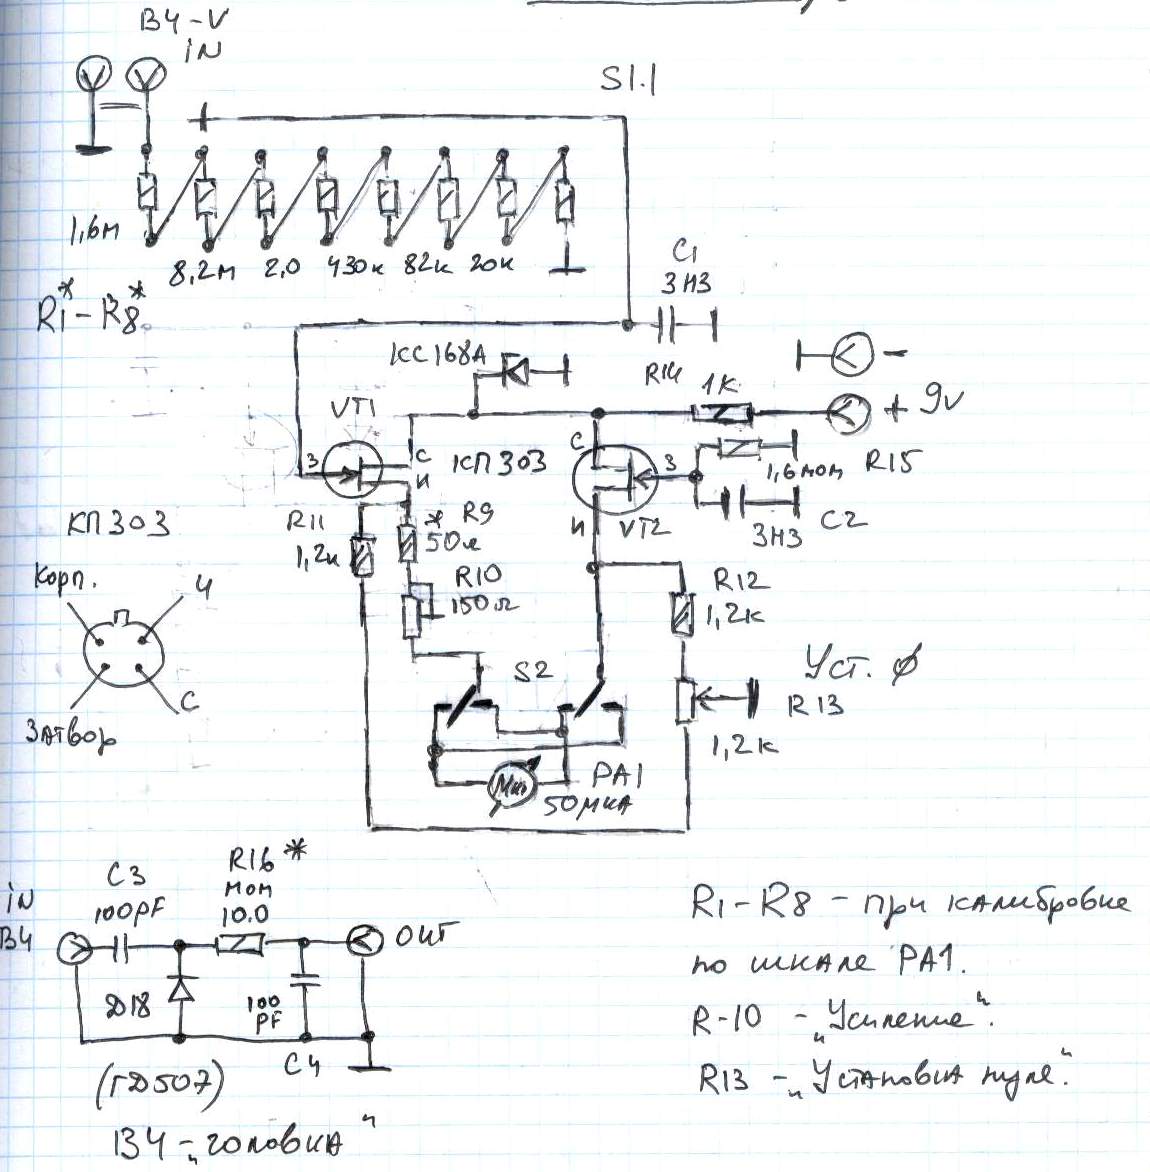 ВЧ-V
iN
S1.1
1,6м
8,2м 2,0 430к 82к 20к
R1* - R8*
C1
3Н3
КС168А
R14
1К
-
+ 9v
VT1
С
З
И
КП303
С
З
И
VT2
1,6мом
R15
3Н3
C2
R11
1,2к
* R9
50Ω
R10
150Ω
КП303
Корп.
И
Затвор
С
S2
R12
1,2к
Уст. ф
R13
1,2к
PA1
50мкА
iN
ВЧ
C3
100pF
R16 *
мом
10.0
OUT
Д18
100
PF
C4
(ГД507)
ВЧ-„головка"
R1-R8 - при калибровке
по шкале PA1.
R-10 - „Усиление".
R13 - „Установка нуля."